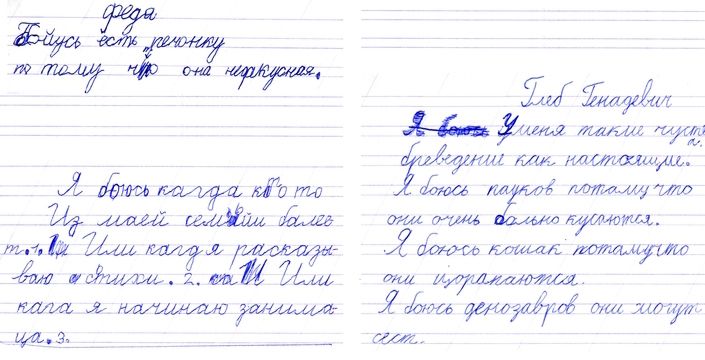 феда
Бойусь есть печонку
по тому что она нефкусная.
Я боюсь кагда кто то
Из маей семьйи балее-
т.1. Или кагд я расказы-
ваю стихи. 2. Или
кага я начинаю занима-
ца.3.
Глеб Генадевич
Я боюсь Уменя такие чуст
бреведение как настоящие.
Я боюсь пауков потамучто
они очень больно кусаются.
Я боюсь кошак потамушто
они цорапаются.
Я боюсь денозавров они могут
сест.